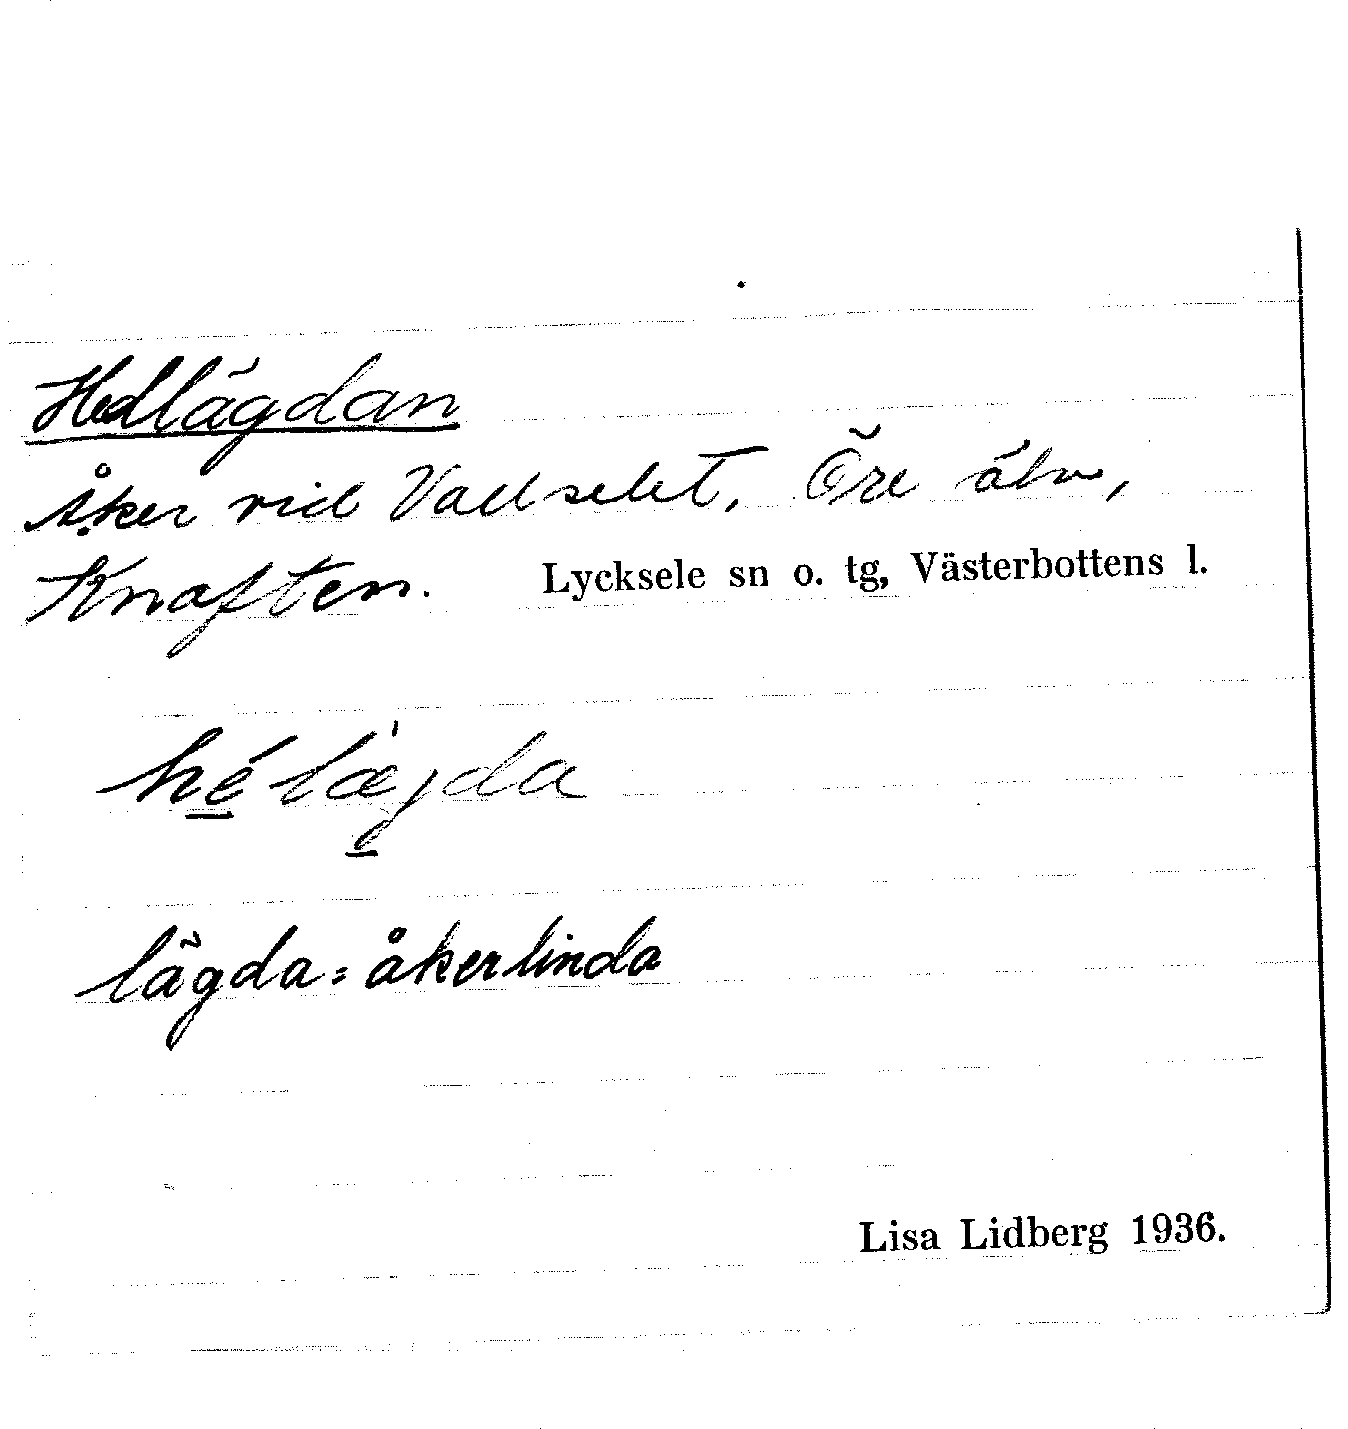 Hedlägdan
Åker vid Vadselet, Öre älv,
Knaften. Lycksele sn o. tg, Västerbottens l.
hé læ̀gda
lägda = åkerlinda
Lisa Lidberg 1936.